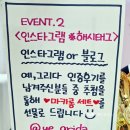 EVENT.2
<인스타그램 #해시태그>
인스타그램 or 블로그
예,그리다 인증후기를
남겨주신분들 중 추첨을
통해 ♥마카롱 세트♥를
선물로 드립니다!